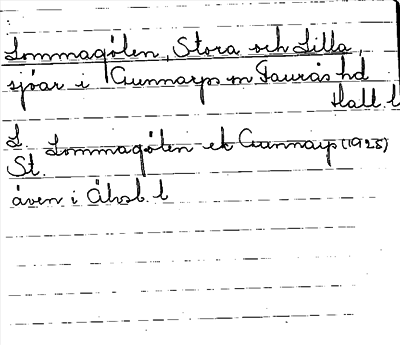 Lommagölen, Stora och Lilla,
sjöar i Gunnarps sn Faurås hd
Hall. l
L. Lommagölen ek Gunnarp (1925)
St.
även i Älvsb. l